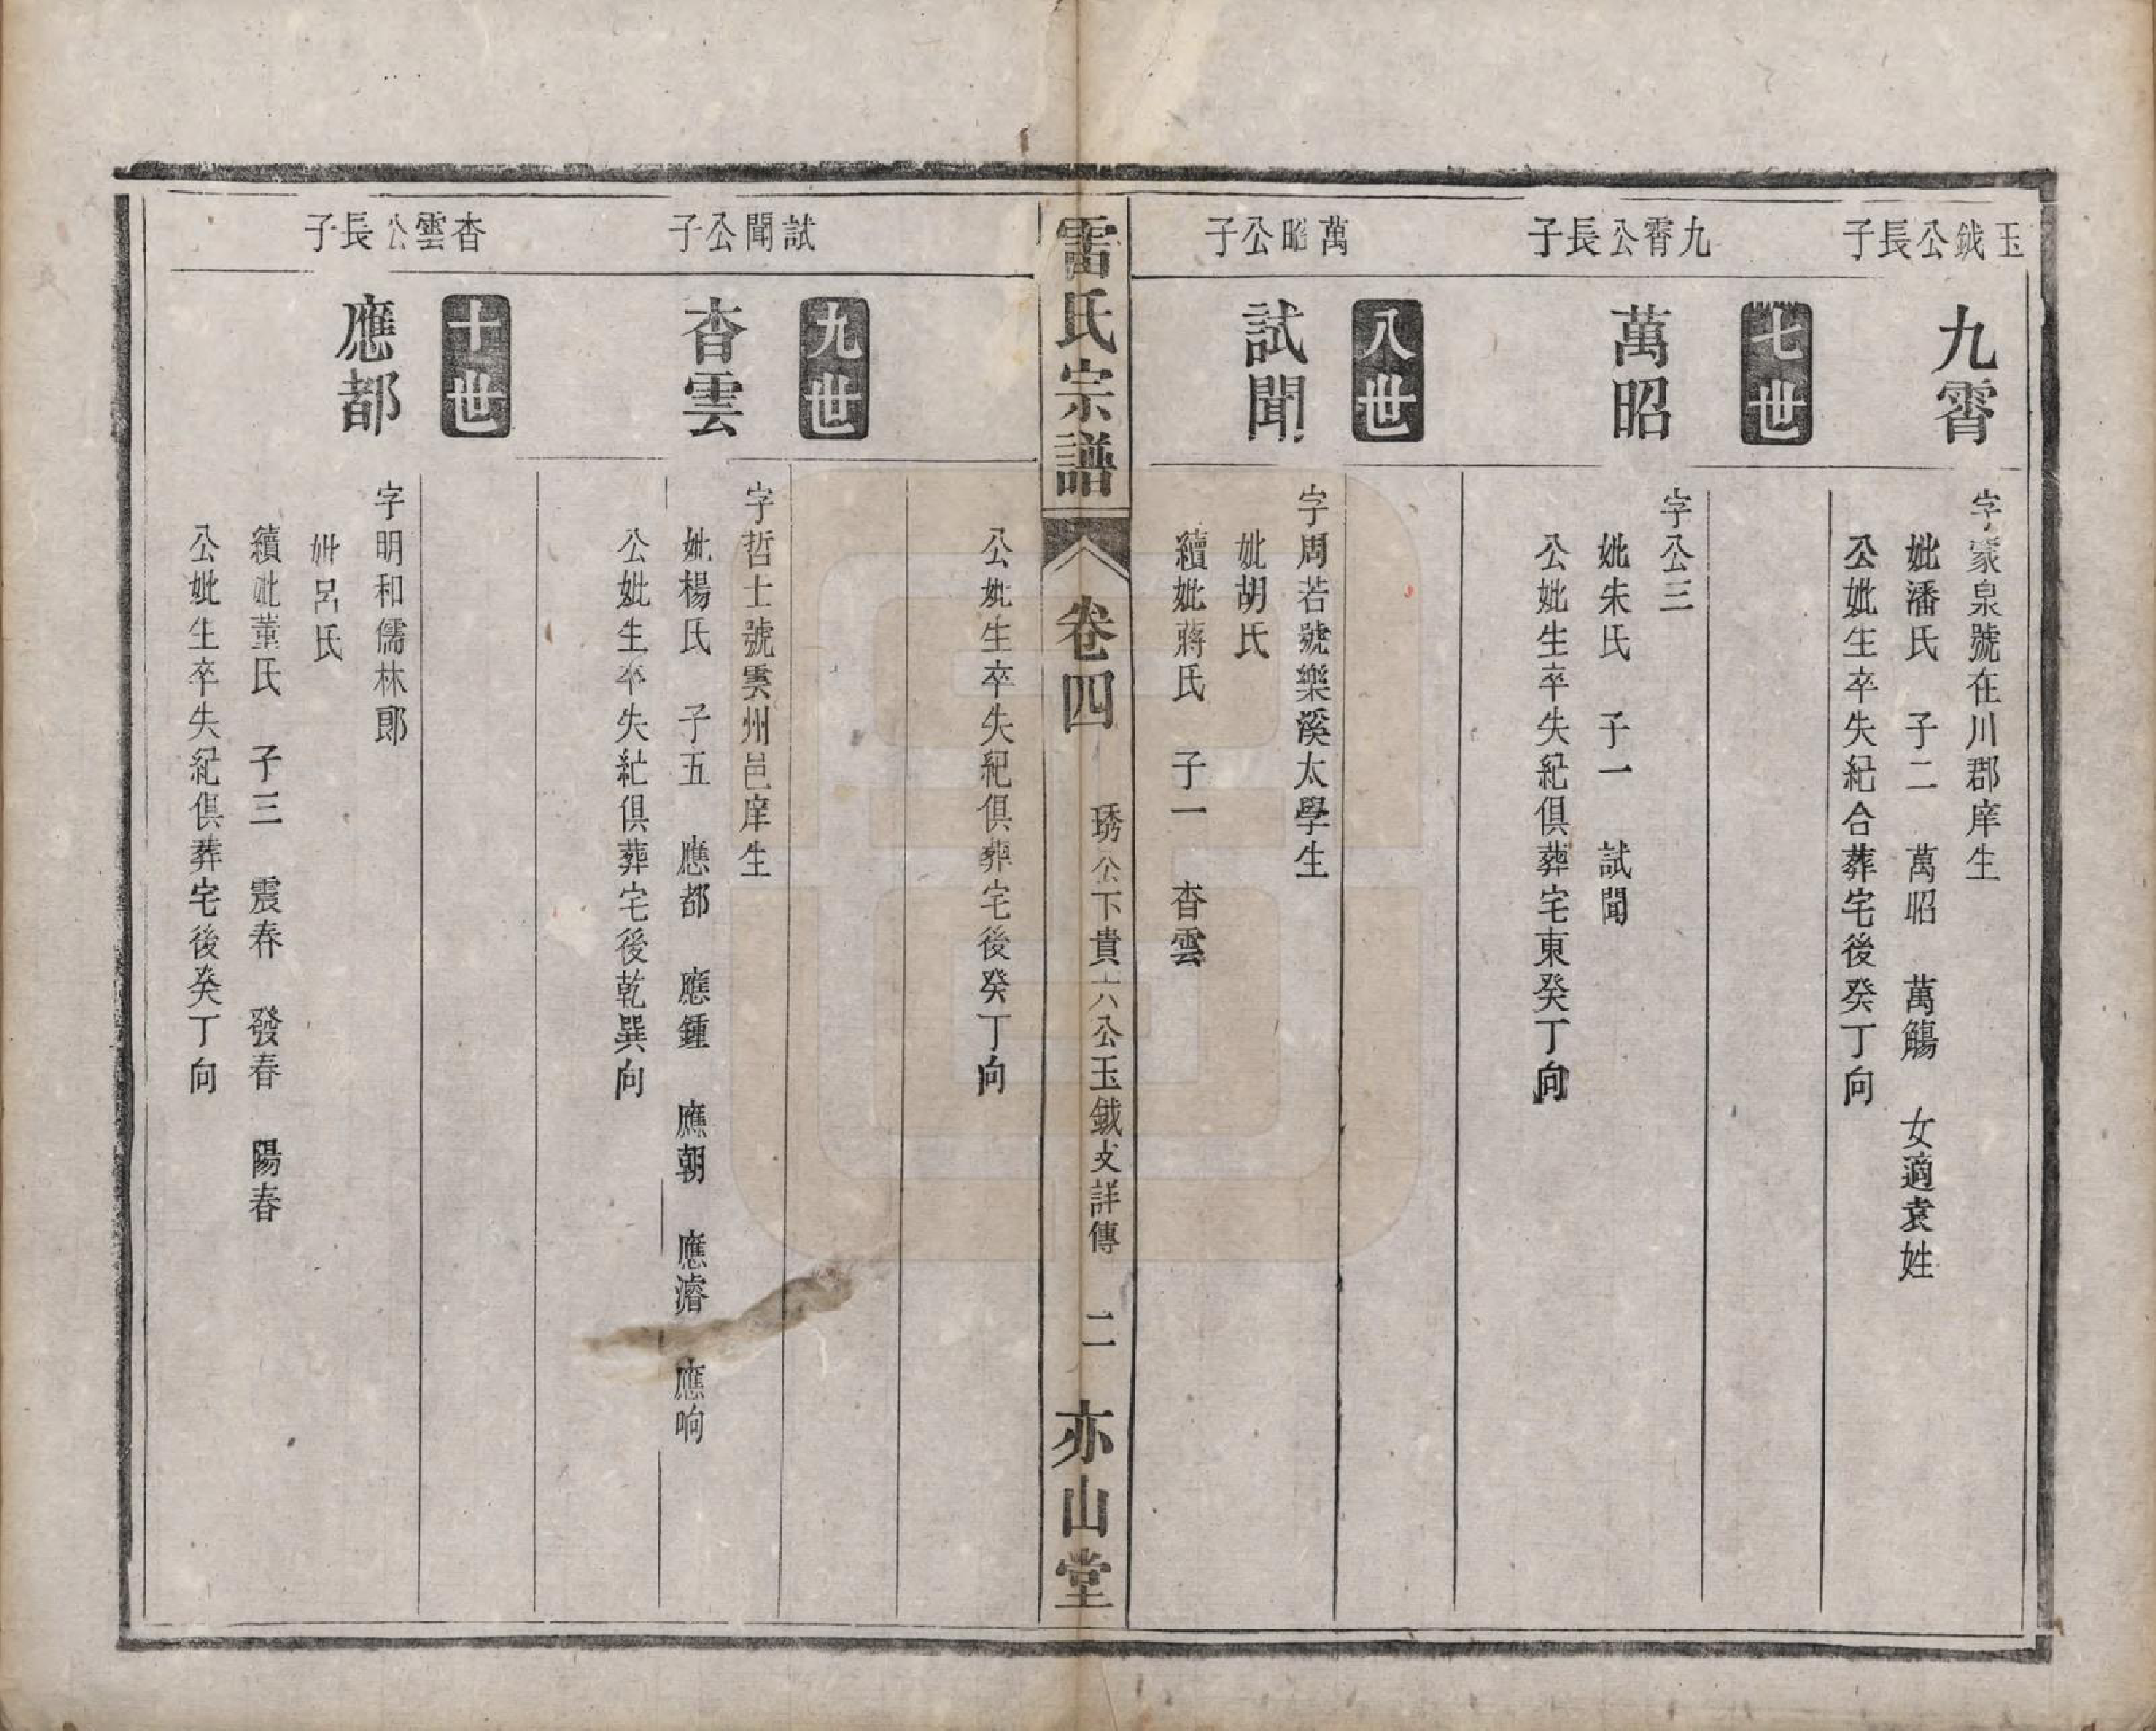 玉鉞公長子
九霄
字蒙泉號在川郡庠生
妣潘氏　子二　萬昭　萬觴　女適袁姓
公妣生卒失紀合葬宅後癸丁向
七世
九霄公長子
萬昭
字公三
妣朱氏　子一　試聞
公妣生卒失紀俱葬宅東癸丁向
八世
萬昭公子
試聞
字周若號樂溪太學生
妣胡氏
續妣蔣氏　子一　杳雲
雷氏宗譜
卷四
琇公下貴六公玉鉞支詳傳
二
亦山堂
公妣生卒失紀俱葬宅後癸丁向
九世
試聞公子
杳雲
字哲士號雲州邑庠生
妣楊氏　子五　應都　應鍾　應朝　應濬　應响
公妣生卒失紀俱葬宅後乾巽向
十世
杳雲公長子
應都
字明和儒林郎
妣呂氏
續妣董氏　子三　震春　發春　陽春
公妣生卒失紀俱葬宅後癸丁向